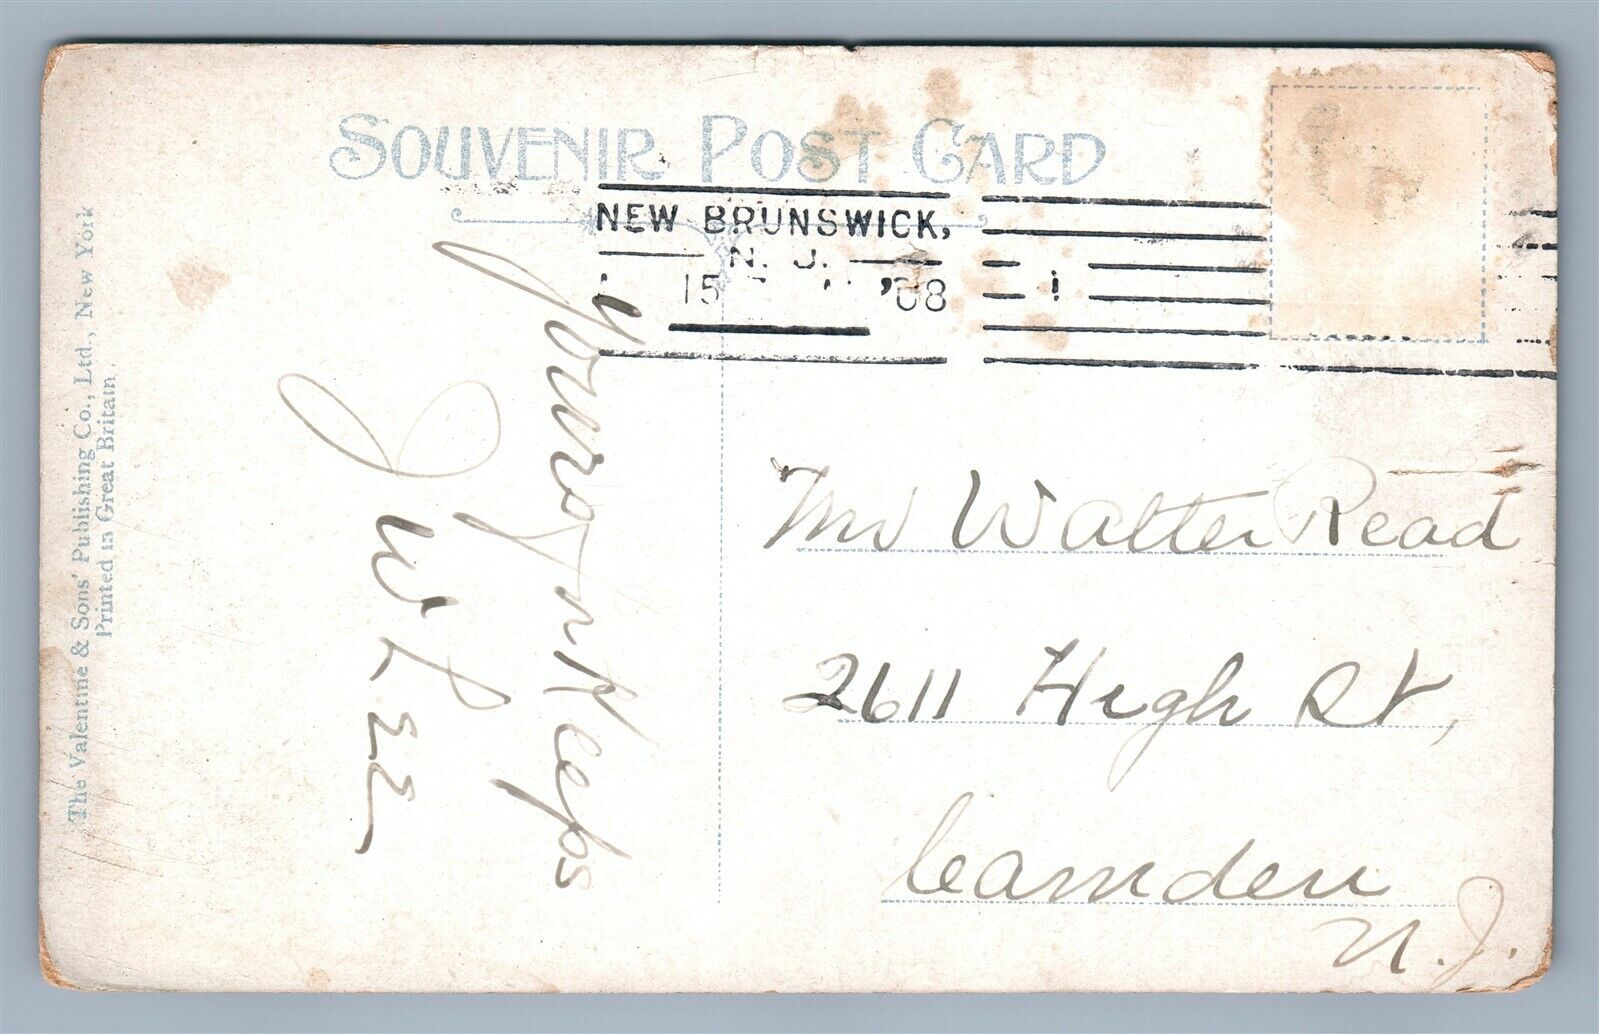 SOUVENIR POST CARD
NEW BRUNSWICK,
N. J.
15 '08
The Valentine & Sons' Publishing Co., Ltd., New York
Printed in Great Britain
Yours for Keeps
J W Lee
Mr Walter Read
2611 High St,
Camden
N.J.